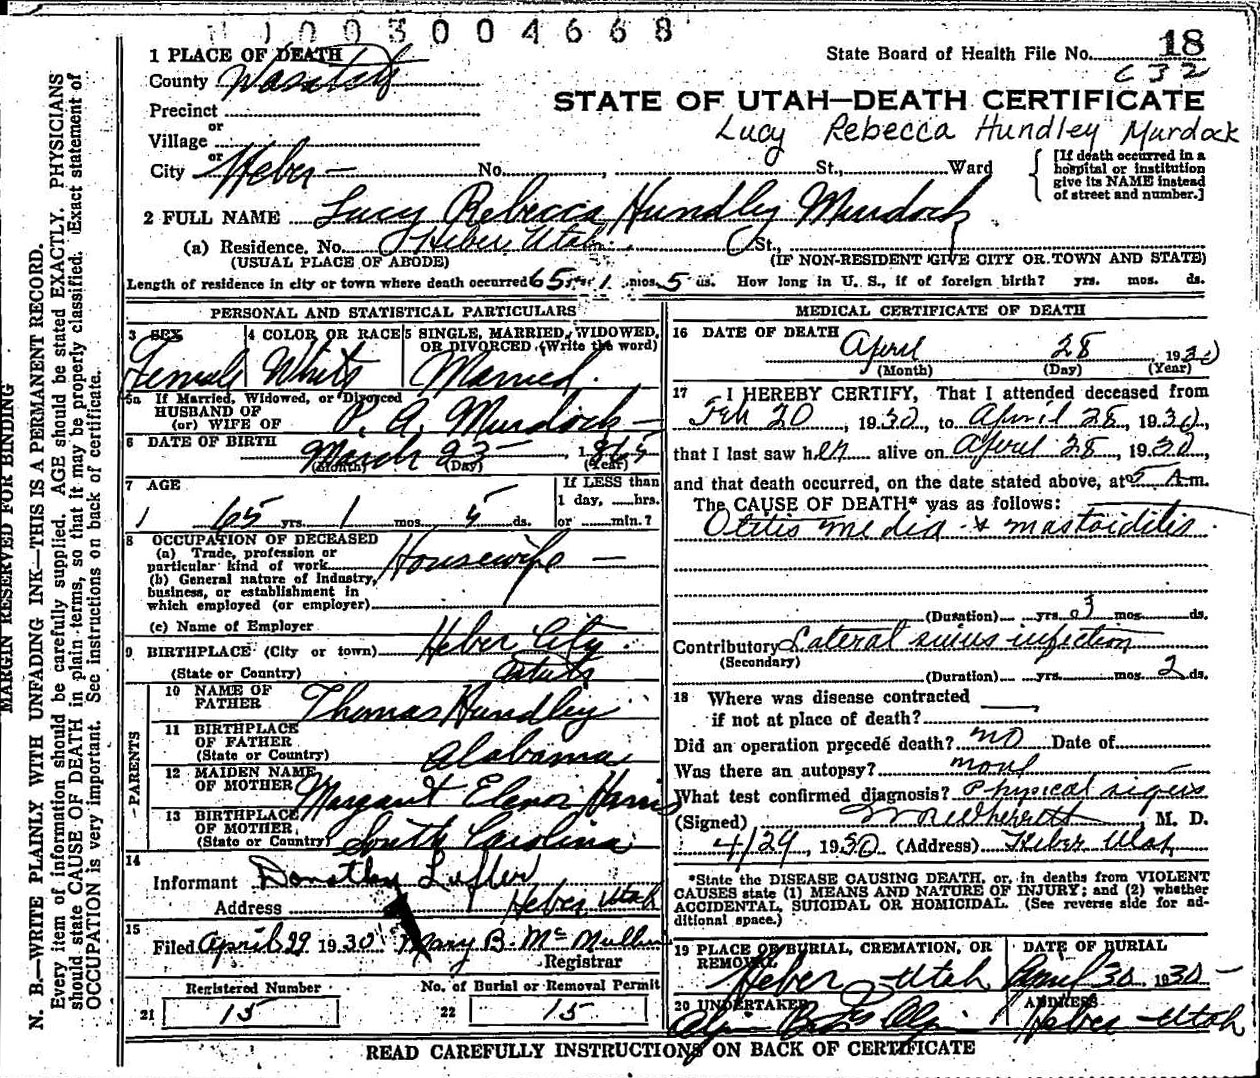 11003004668
1 PLACE OF DEATH
County Wasatch
State Board of Health File No. 18
632
Precinct
or
Village
or
City Heber No. St., Ward
STATE OF UTAH—DEATH CERTIFICATE
Lucy Rebecca Hundley Murdock
[If death occurred in a
hospital or institution
give its NAME instead
of street and number.]
2 FULL NAME Lucy Rebecca Hundley Murdock
(a) Residence, No. Heber Utah St.,
(USUAL PLACE OF ABODE) (IF NON-RESIDENT GIVE CITY OR TOWN AND STATE)
Length of residence in city or town where death occurred 65 yrs. 1 mos. 5 ds. How long in U. S., if of foreign birth? yrs. mos. ds.
PERSONAL AND STATISTICAL PARTICULARS
3 SEX Female
4 COLOR OR RACE White
5 SINGLE, MARRIED, WIDOWED,
OR DIVORCED (Write the word)
Married.
5a If Married, Widowed, or Divorced
HUSBAND OF
(or) WIFE OF P. A. Murdock
6 DATE OF BIRTH March 23 1865
(Month) (Day) (Year)
7 AGE
65 yrs. 1 mos. 5 ds.
If LESS than
1 day, hrs.
or min.?
8 OCCUPATION OF DECEASED
(a) Trade, profession or
particular kind of work Housewife
(b) General nature of Industry,
business, or establishment in
which employed (or employer)
(c) Name of Employer
9 BIRTHPLACE (City or town) Heber City
(State or Country)
PARENTS
10 NAME OF
FATHER Thomas Hundley
11 BIRTHPLACE
OF FATHER
(State or Country) Alabama
12 MAIDEN NAME
OF MOTHER Margaret Elenor Harris
13 BIRTHPLACE
OF MOTHER
(State or Country) South Carolina
14
Informant Dorothy
Address Heber Utah
15
Filed April 29 1930 Mary B. McMullin
Registrar
Registered Number
21 15
No. of Burial or Removal Permit
22 15
MEDICAL CERTIFICATE OF DEATH
16 DATE OF DEATH
April 28 1930
(Month) (Day) (Year)
17 I HEREBY CERTIFY, That I attended deceased from
Feb 20, 1930, to April 28, 1930,
that I last saw her alive on April 28, 1930,
and that death occurred, on the date stated above, at 5 A.m.
The CAUSE OF DEATH* was as follows:
Otitis media & mastoiditis
(Duration) yrs. 3 mos. ds.
Contributory Lateral sinus infection
(Secondary)
(Duration) yrs. mos. 2 ds.
18 Where was disease contracted
if not at place of death?
Did an operation precede death? no Date of
Was there an autopsy? none
What test confirmed diagnosis? Physical signs
(Signed) M. D.
4/29, 1930 (Address) Heber Utah
*State the DISEASE CAUSING DEATH, or, in deaths from VIOLENT
CAUSES state (1) MEANS AND NATURE OF INJURY; and (2) whether
ACCIDENTAL, SUICIDAL OR HOMICIDAL. (See reverse side for ad-
ditional space.)
19 PLACE OF BURIAL, CREMATION, OR
REMOVAL Heber Utah
DATE OF BURIAL
April 30 1930
20 UNDERTAKER
ADDRESS
Heber Utah
READ CAREFULLY INSTRUCTIONS ON BACK OF CERTIFICATE
MARGIN RESERVED FOR BINDING
N. B.—WRITE PLAINLY WITH UNFADING INK—THIS IS A PERMANENT RECORD.
Every item of information should be carefully supplied. AGE should be stated EXACTLY. PHYSICIANS
should state CAUSE OF DEATH in plain terms, so that it may be properly classified. Exact statement of
OCCUPATION is very important. See instructions on back of certificate.